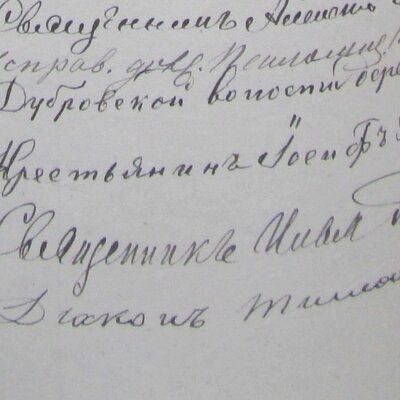 Священникъ Алексѣ
справ. дол. Псаломщ
Дубровской волости дере
Крестьянинъ Іосифъ
Священникъ
Діаконъ